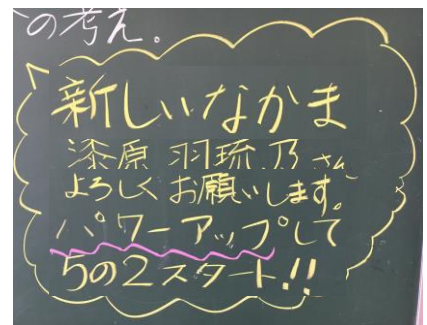 の考え。
新しいなかま
漆原 羽琉乃 さん
よろしくお願いします。
パワーアップして
5の2スタート!!